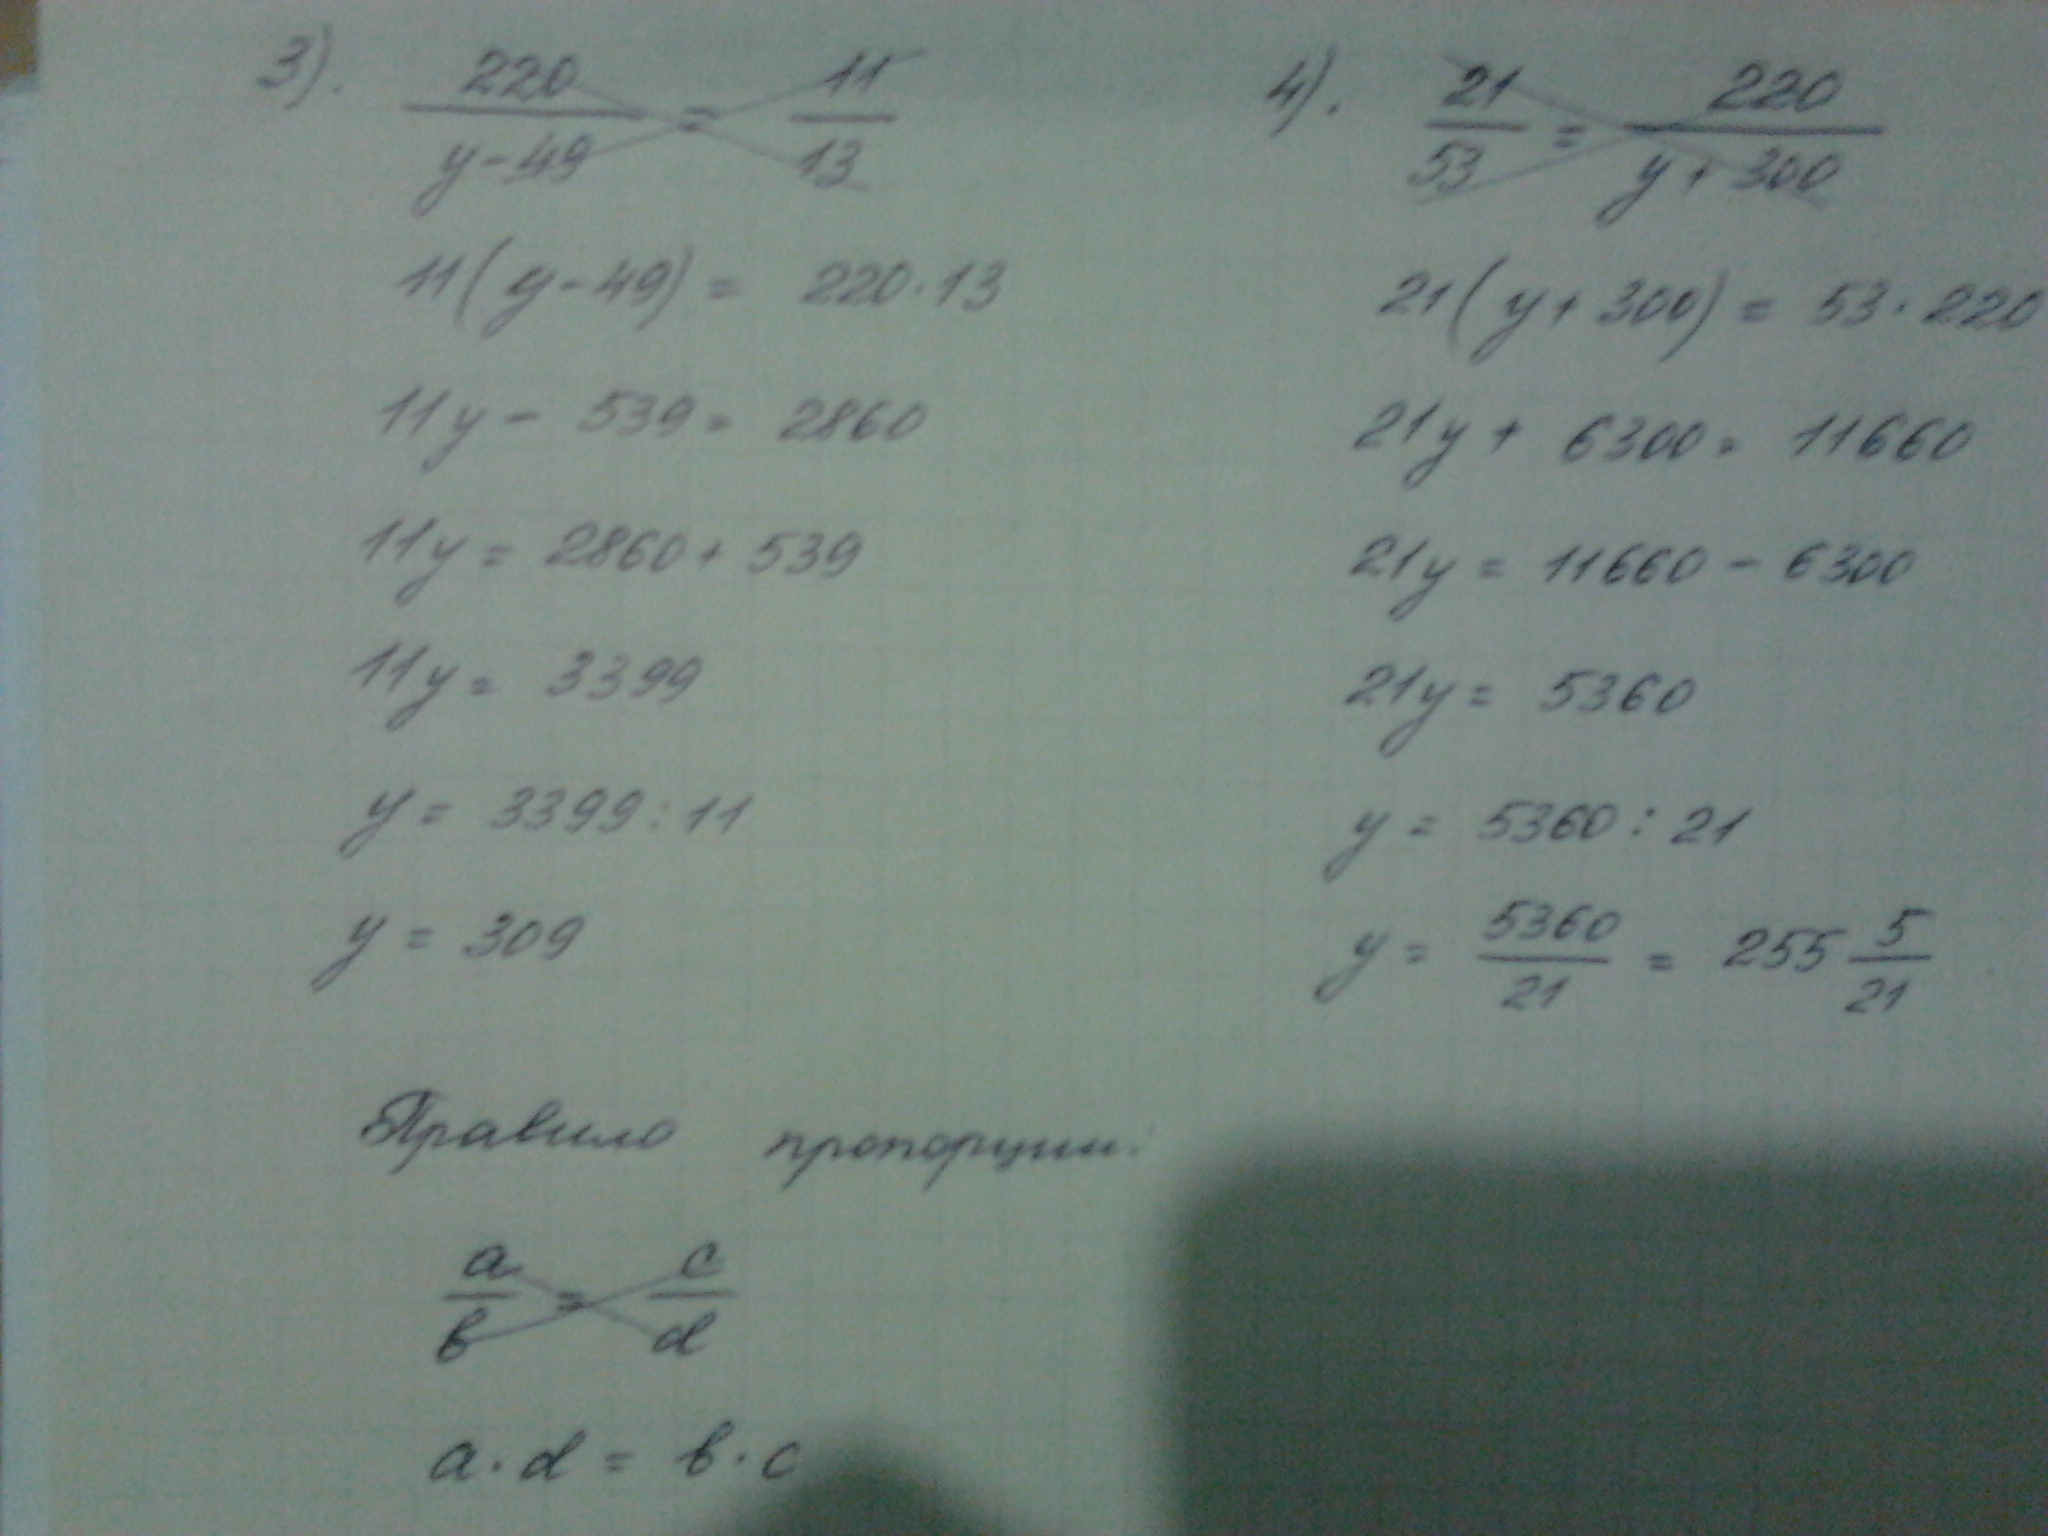 3). 220/(y-49) = 11/13
11(y-49) = 220·13
11y - 539 = 2860
11y = 2860 + 539
11y = 3399
y = 3399:11
y = 309
4). 21/53 = 220/(y+300)
21(y+300) = 53·220
21y + 6300 = 11660
21y = 11660 - 6300
21y = 5360
y = 5360:21
y = 5360/21 = 255 5/21
Правило пропорции:
a/b = c/d
a·d = b·c